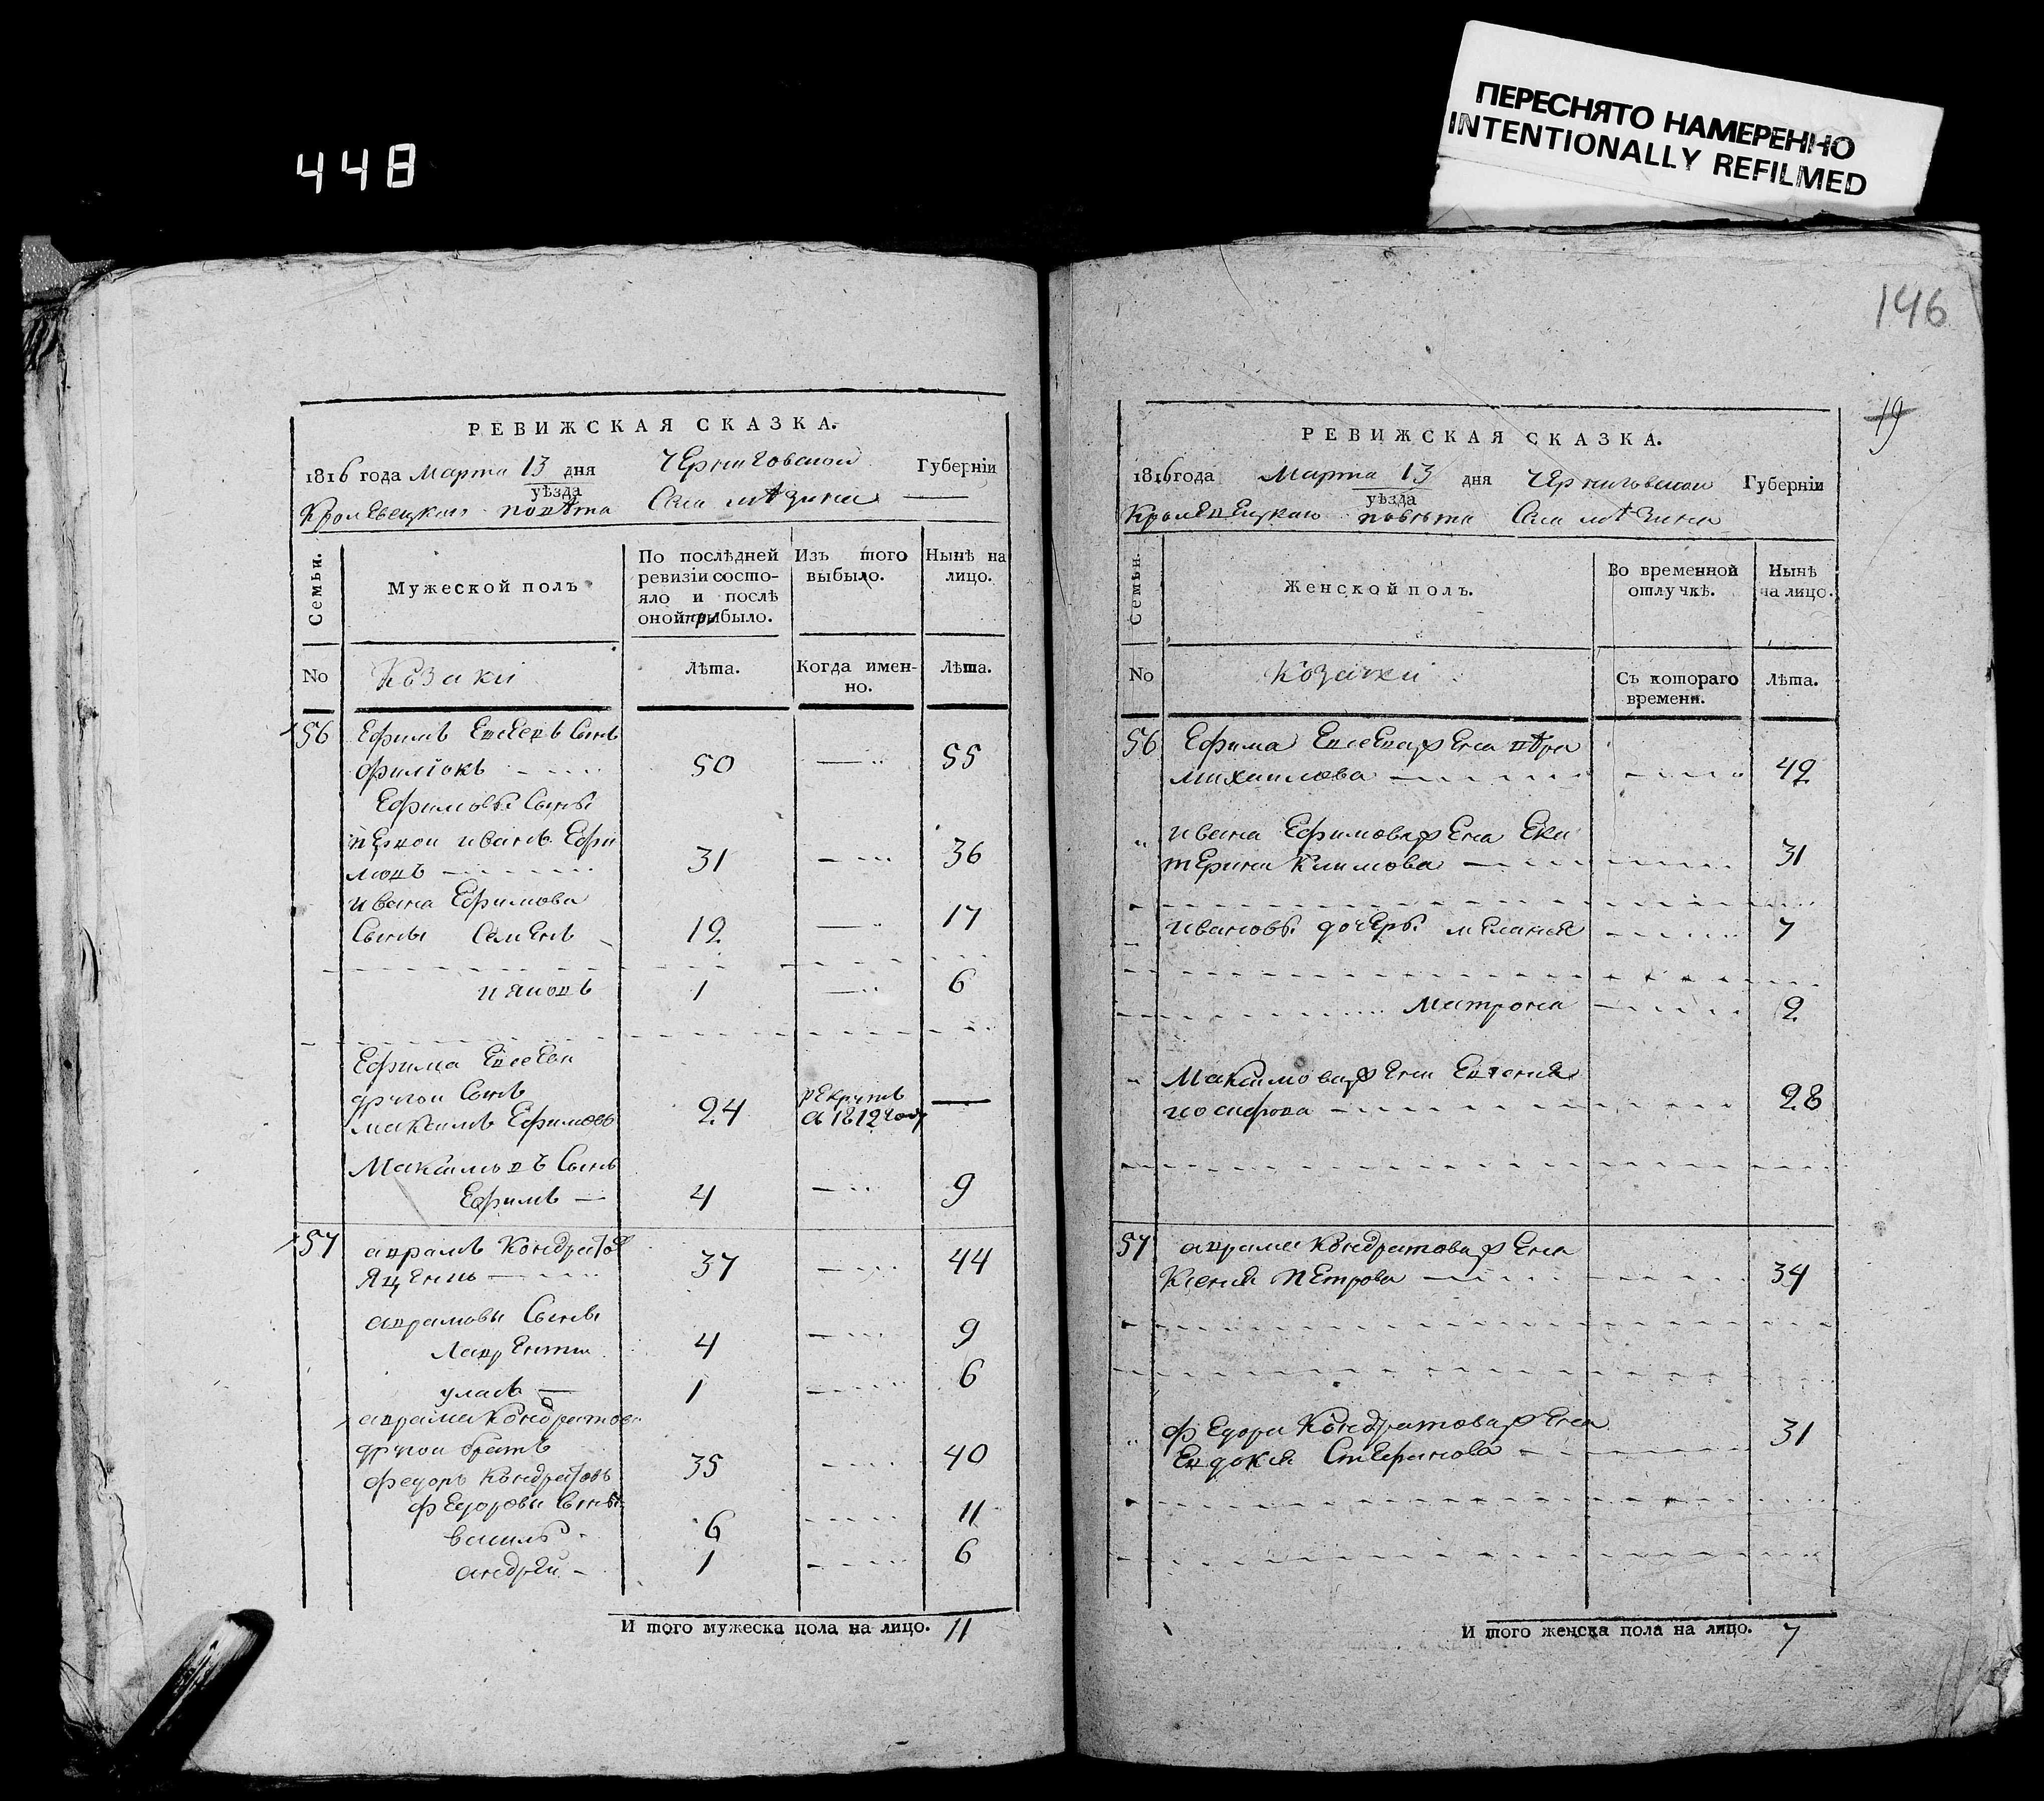 448
ПЕРЕСНЯТО НАМЕРЕННО
INTENTIONALLY REFILMED
РЕВИЖСКАЯ СКАЗКА.
1816 года Марта 13 дня Черниговской Губерніи
уѣзда
Кролевецкаго повѣта Села мѣзина
Семьи. Мужеской полъ По послѣдней ревизіи состо- яло и послѣ оной прибыло. Изъ того выбыло. Нынѣ на лицо.
No Козаки Лѣта. Когда имен- но. Лѣта.
56 Ефимъ Евсеевъ Сынъ
Филіокъ 50 55
Ефимовъ Сынъ
первои иванъ Ефи
мовъ 31 36
ивана Ефимова
Сыны Семенъ 12 17
ияковъ 1 6
Ефима Евсеева
другои Сынъ
максимъ Ефимовъ 24 рекрутъ въ 1812 году
Максимовъ Сынъ
Ефимъ 4 9
57 аврамъ Кондратов
Яценко 37 44
аврамовы Сыны
Лаврентии 4 9
уласъ 1 6
аврама Кондратова
другои братъ
Федоръ Кондратовъ 35 40
Федоровы Сыны
василь 6 11
андрей 1 6
И того мужеска пола на лицо. 11
146
19
РЕВИЖСКАЯ СКАЗКА.
1816 года Марта 13 дня Черниговской Губерніи
уѣзда
Кролевецкаго повѣта Села мѣзина
Семьи. Женской полъ. Во временной отлучкѣ. Нынѣ на лицо.
No Козачки Съ котораго времени. Лѣта.
56 Ефима Евсеева жена
михаилова 49
ивана Ефимова жена Ека
терина Климова 31
Ивановы дочеры мелания 7
Матрона 2
Максимова жена Евгения
иосифова 28
57 аврама Кондратова жена
Ксения Петрова 34
федора Кондратова жена
Евдокия Стефанова 31
И того женска пола на лицо. 7